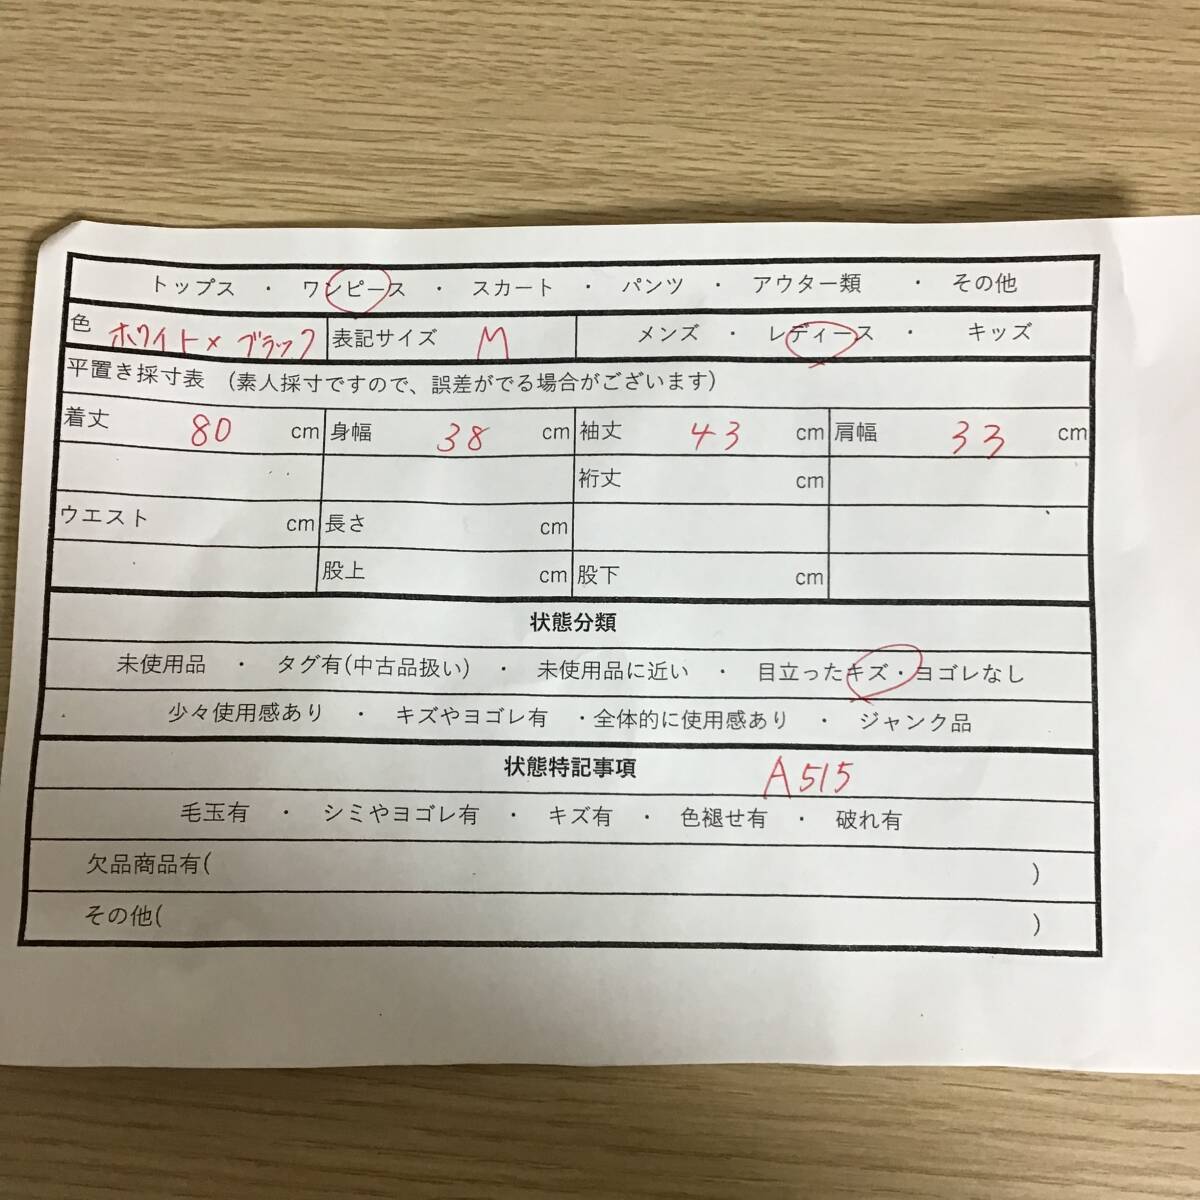 トップス ・ ワンピース ・ スカート ・ パンツ ・ アウター類 ・ その他
色 ホワイト×ブラック 表記サイズ M メンズ ・ レディース ・ キッズ
平置き採寸表 (素人採寸ですので、誤差がでる場合がございます)
着丈 80 cm 身幅 38 cm 袖丈 43 cm 肩幅 33 cm
裄丈 cm
ウエスト cm 長さ cm
股上 cm 股下 cm
状態分類
未使用品 ・ タグ有(中古品扱い) ・ 未使用品に近い ・ 目立ったキズ・ヨゴレなし
少々使用感あり ・ キズやヨゴレ有 ・全体的に使用感あり ・ ジャンク品
状態特記事項 A515
毛玉有 ・ シミやヨゴレ有 ・ キズ有 ・ 色褪せ有 ・ 破れ有
欠品商品有( )
その他( )